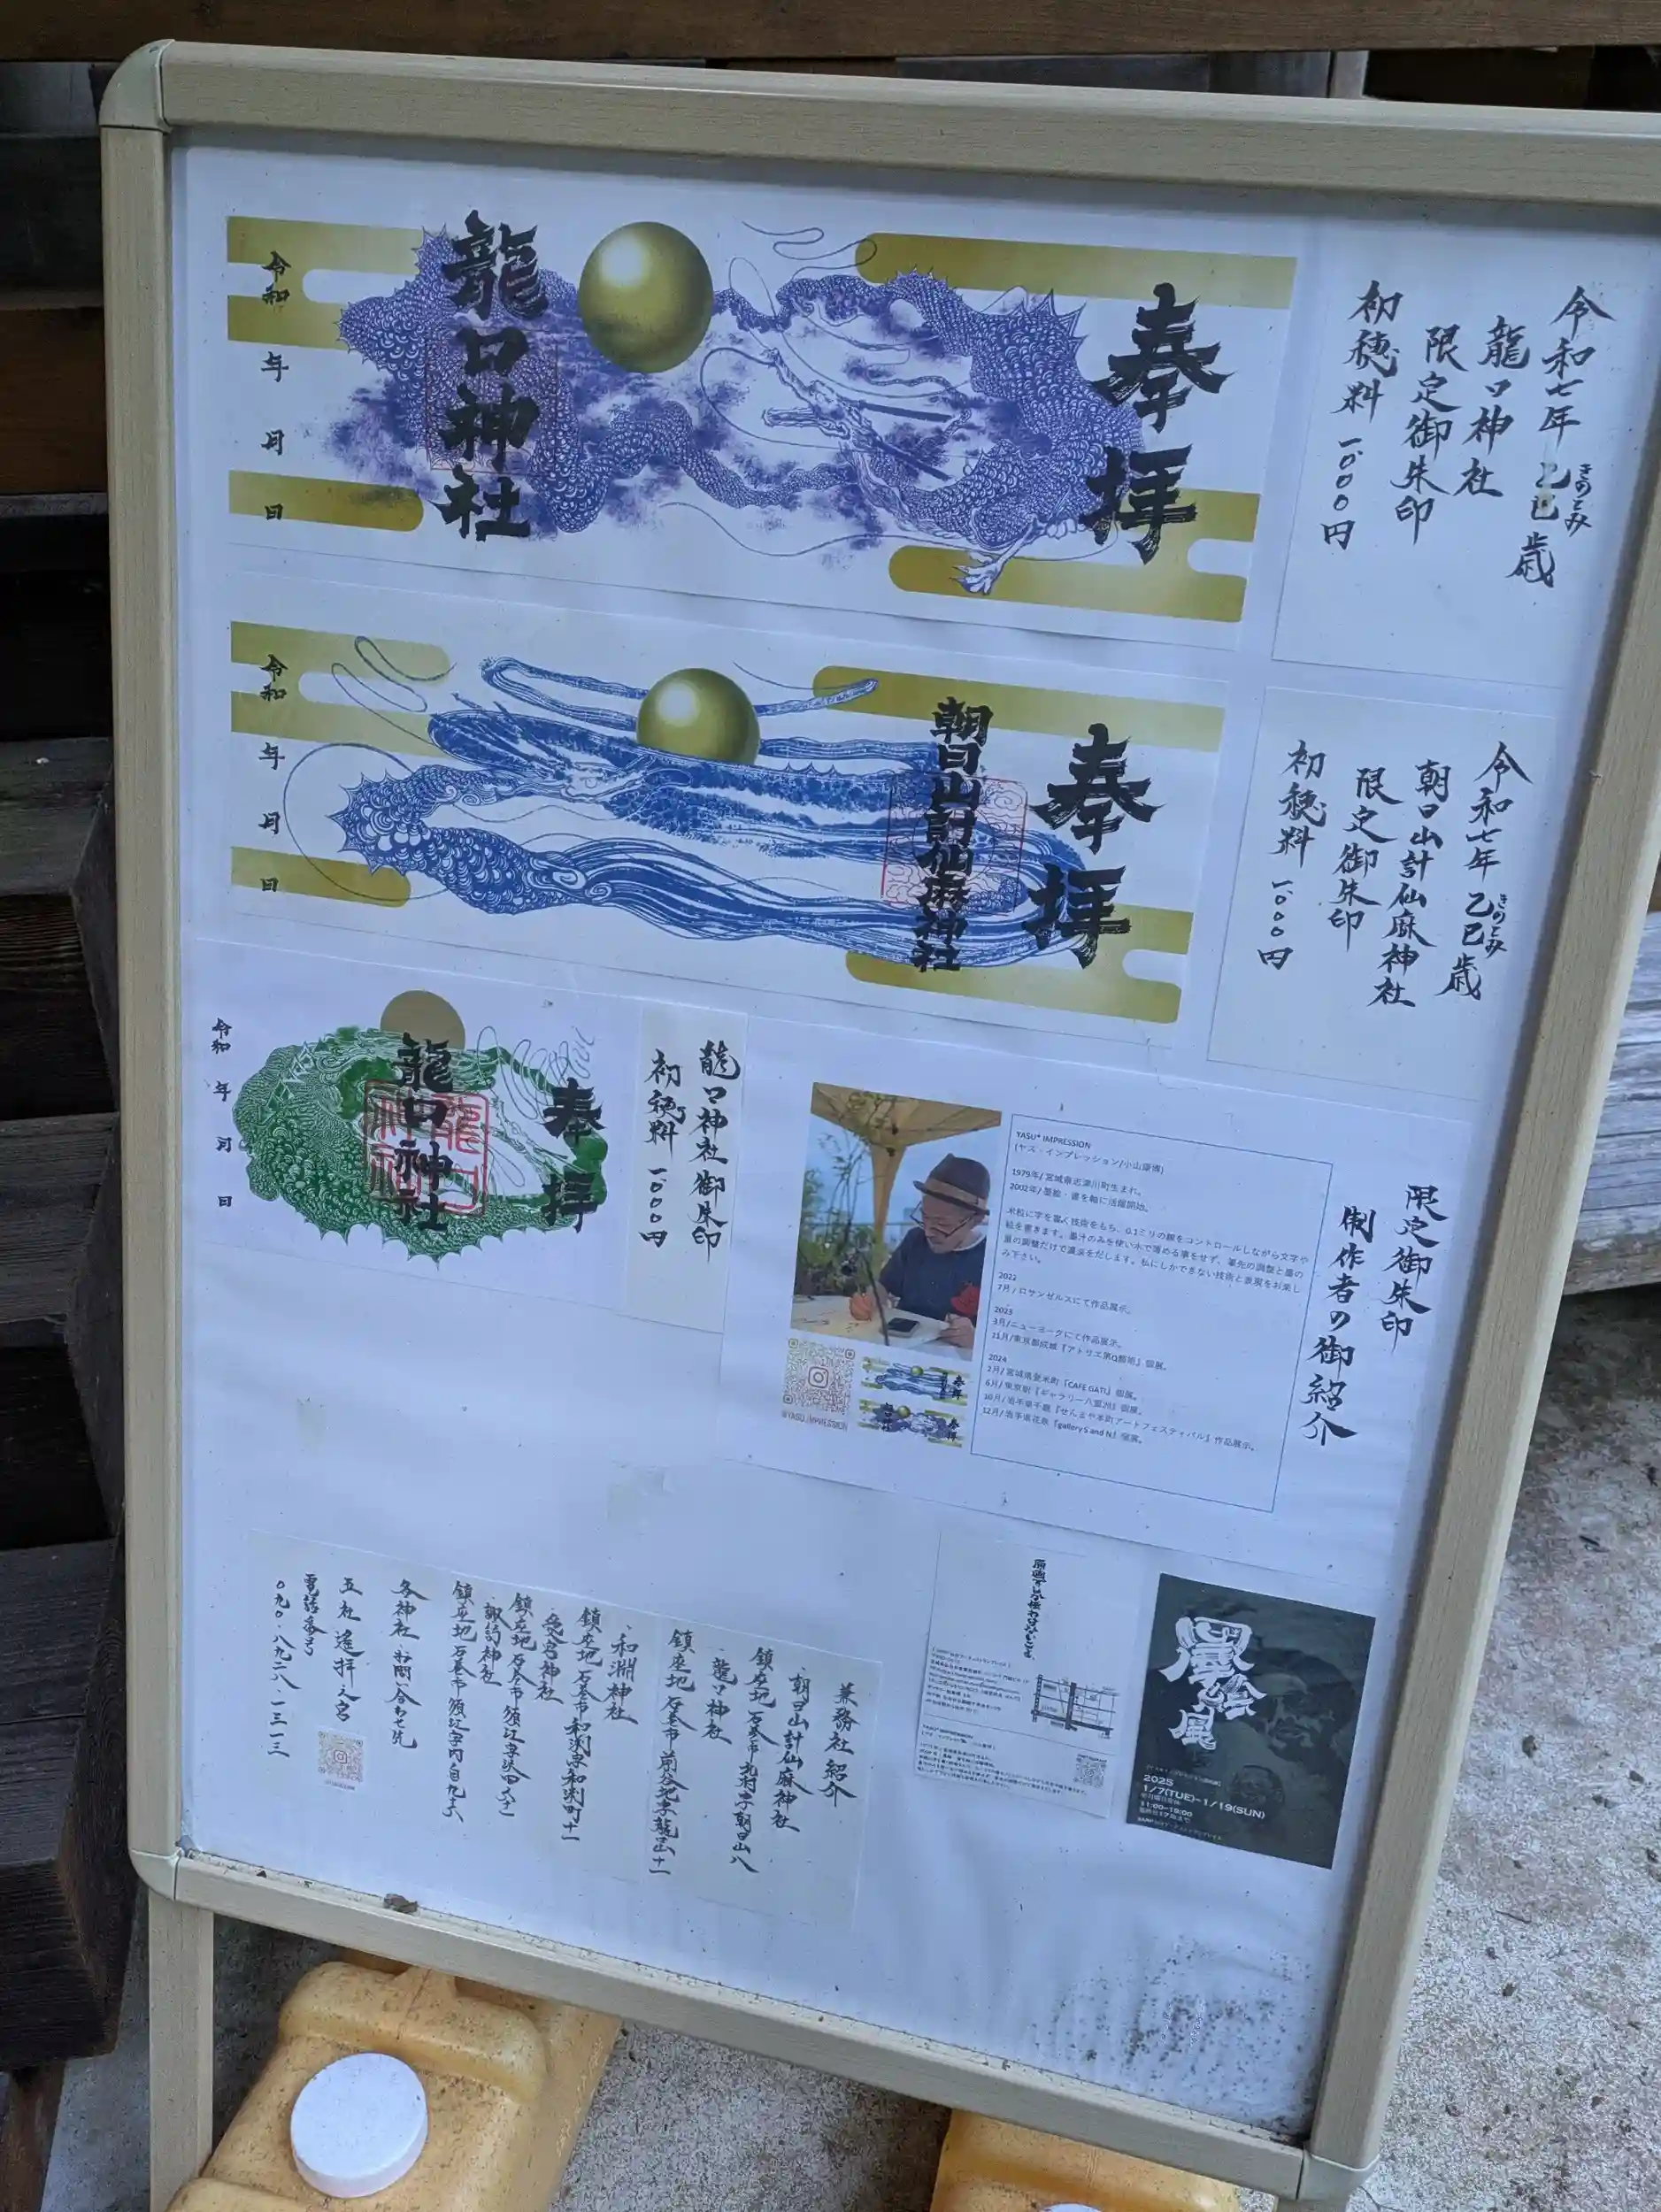 奉拝
龍口神社
令和 年 月 日
令和七年乙巳歳
きのとみ
龍口神社
限定御朱印
初穂料 一、〇〇〇円
奉拝
朝日山計仙麻神社
令和 年 月 日
令和七年乙巳歳
きのとみ
朝日山計仙麻神社
限定御朱印
初穂料 一、〇〇〇円
奉拝
龍口神社
令和 年 月 日
龍口神社御朱印
初穂料 一、〇〇〇円
限定御朱印
制作者の御紹介
YASU* IMPRESSION
(ヤス・インプレッション/小山康博)
1979年/ 宮城県志津川町生まれ。
2002年/ 墨絵・書を軸に活躍開始。
米粒に字を書く技術をもち、0.1ミリの線をコントロールしながら文字や
絵を書きます。墨汁のみを使い水で薄める事をせず、筆先の調整と墨の
量の調整だけで濃淡をだします。私にしかできない技術と表現をお楽し
み下さい。
2022
7月/ ロサンゼルスにて作品展示。
2023
3月/ニューヨークにて作品展示。
11月/東京都成城『アトリエ第Q藝術』個展。
2024
2月/ 宮城県登米町『CAFE GATI』個展。
6月/ 東京駅『ギャラリー八重洲』個展。
10月/ 岩手県千厩『せんまや本町アートフェスティバル』作品展示。
12月/ 岩手県花泉『gallery S and N』個展。
@YASU_IMPRESSION
兼務社紹介
・朝日山計仙麻神社
鎮座地 石巻市北村字朝日山八
・龍口神社
鎮座地 石巻市前谷地字龍の口十一
・和渕神社
鎮座地 石巻市和渕字和渕町十一
・愛宕神社
・諏訪神社
各神社お問い合わせ先
五社遙拝之宮
電話番号
〇九〇・八九二八・一三一三
原画でしか伝わらないこと。
YASU* IMPRESSION
墨絵風
2025
1/7(TUE)-1/19(SUN)